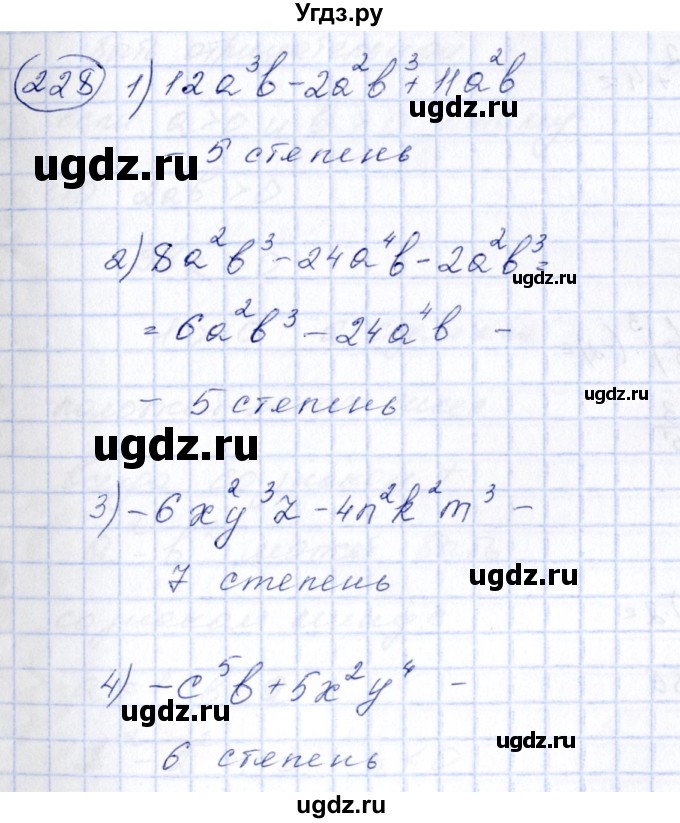 Угдз.ру
228 1) 12a³b - 2a²b³ + 11a²b
ugdz.ru
ugdz.ru
- 5 степень
2) 8a²b³ - 24a⁴b - 2a²b³ =
ugdz.ru
= 6a²b³ - 24a⁴b -
ugdz.ru
- 5 степень
ugdz.ru
3) - 6xy²³z - 4n²k²m³ -
7 степень
ugdz.ru
4) - c⁵b + 5x²y⁴ -
ugdz.ru
ugdz.ru
6 степень
ugdz.ru